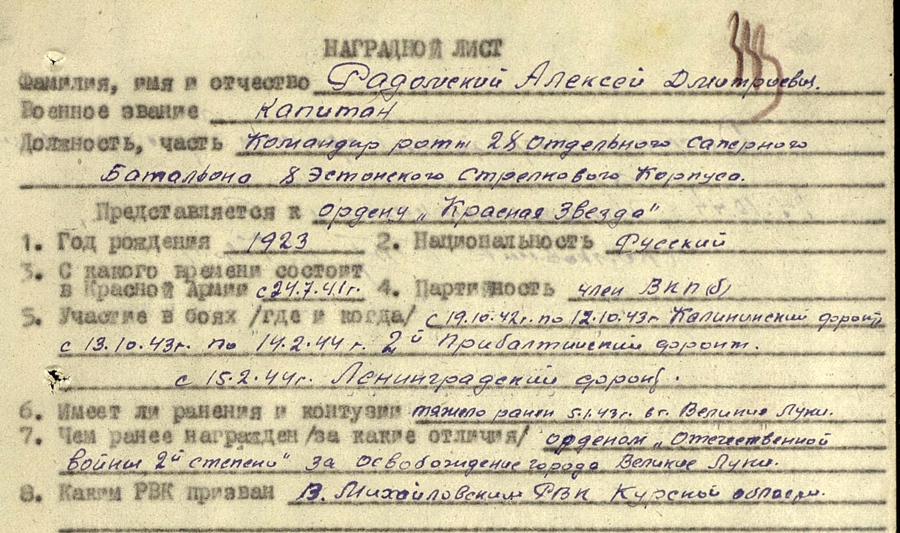 НАГРАДНОЙ ЛИСТ
Фамилия, имя и отчество Радомский Алексей Дмитриевич.
Военное звание Капитан
Должность, часть Командир роты 28 Отдельного Саперного
Батальона 8 Эстонского Стрелкового Корпуса.
Представляется к ордену „Красная Звезда"
1. Год рождения 1923 2. Национальность Русский
3. С какого времени состоит
в Красной Армии с 24.7.41г. 4. Партийность член ВКП(б)
5. Участие в боях /где и когда/ с 19.10.42г. по 12.10.43г Калининский фронт,
с 13.10.43г. по 14.2.44г. 2й Прибалтийский фронт.
с 15.2.44г. Ленинградский фронт.
6. Имеет ли ранения и контузии тяжело ранен 5.1.43г. в г. Великие Луки.
7. Чем ранее награжден /за какие отличия/ орденом „Отечественной
войны 2й степени" за освобождение города Великие Луки.
8. Каким РВК призван В. Михайловским РВК Курской области.